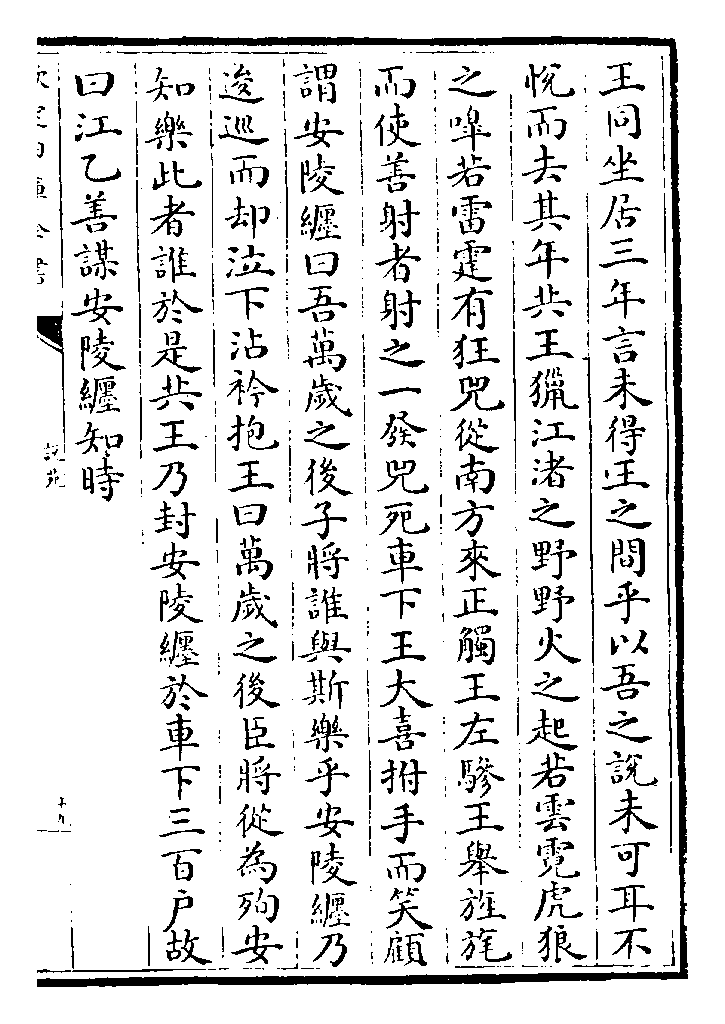 王同坐居三年言未得王之間乎以吾之說未可耳不
悅而去其年共王獵江渚之野野火之起若雲霓虎狼
之嘷若雷霆有狂兕從南方來正觸王左驂王舉旌旄
而使善射者射之一發兕死車下王大喜拊手而笑顧
謂安陵纏曰吾萬歲之後子將誰與斯樂乎安陵纏乃
逡巡而却泣下沾衿抱王曰萬歲之後臣將從為殉安
知樂此者誰於是共王乃封安陵纏於車下三百户故
曰江乙善謀安陵纏知時
欽定四庫全書
說苑
十九